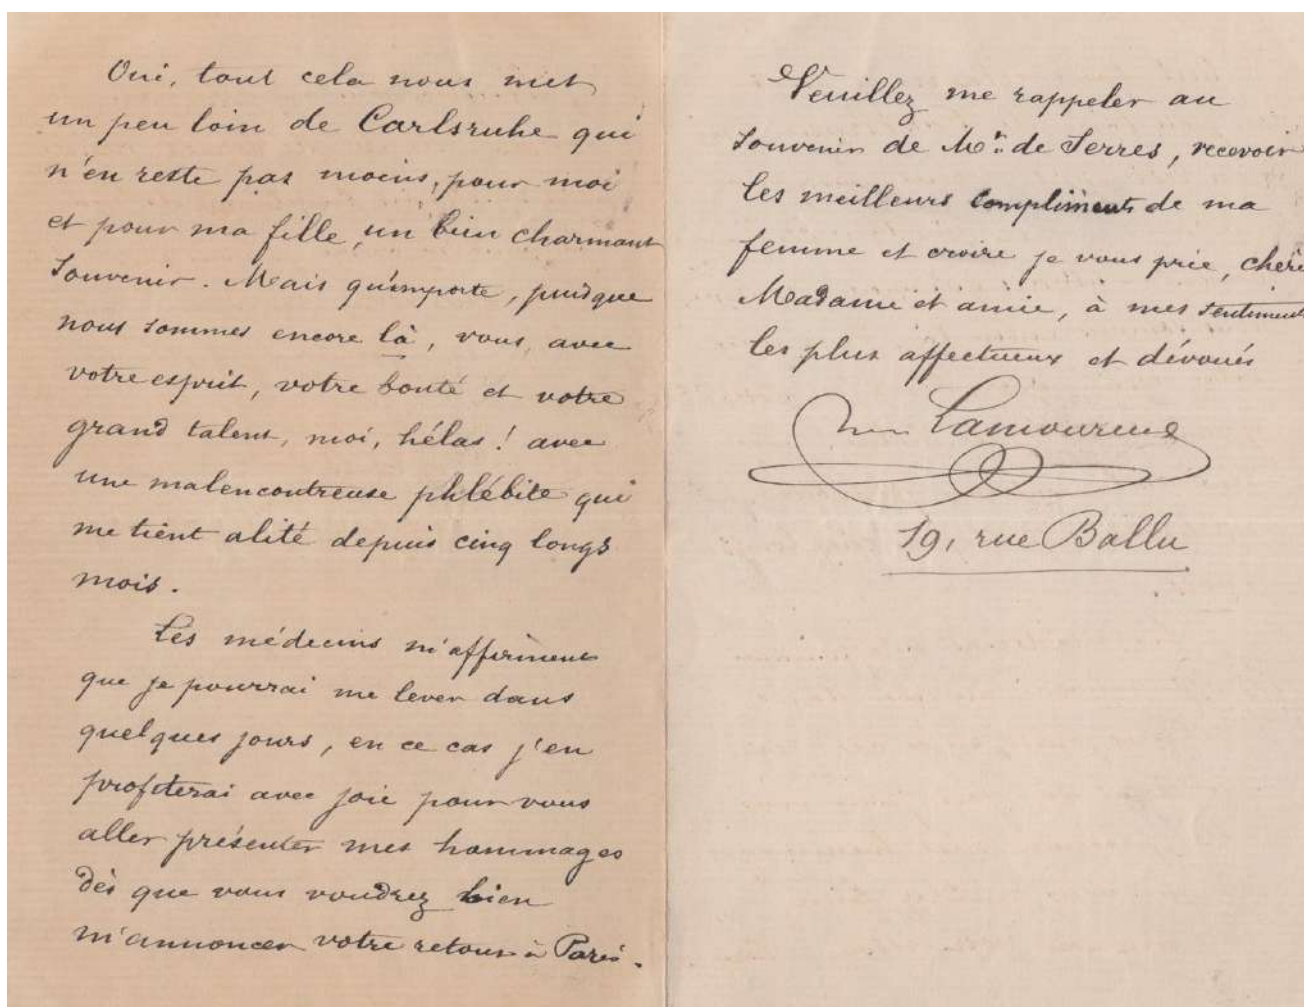 Oui, tout cela nous met
un peu loin de Carlsruhe qui
n'en reste pas moins, pour moi
et pour ma fille, un bien charmant
souvenir. Mais qu'importe, puisque
nous sommes encore là, vous, avec
votre esprit, votre bonté et votre
grand talent, moi, hélas! avec
une malencontreuse phlébite qui
me tient alité depuis cinq longs
mois.
Les médecins m'affirment
que je pourrai me lever dans
quelques jours, en ce cas j'en
profiterai avec joie pour vous
aller présenter mes hommages
dès que vous voudrez bien
m'annoncer votre retour à Paris.
Veuillez me rappeler au
souvenir de Mr. de Serres, recevoir
les meilleurs compliments de ma
femme et croire je vous prie, chère
Madame et amie, à mes sentiments
les plus affectueux et dévoués
Lamoureux
19, rue Ballu